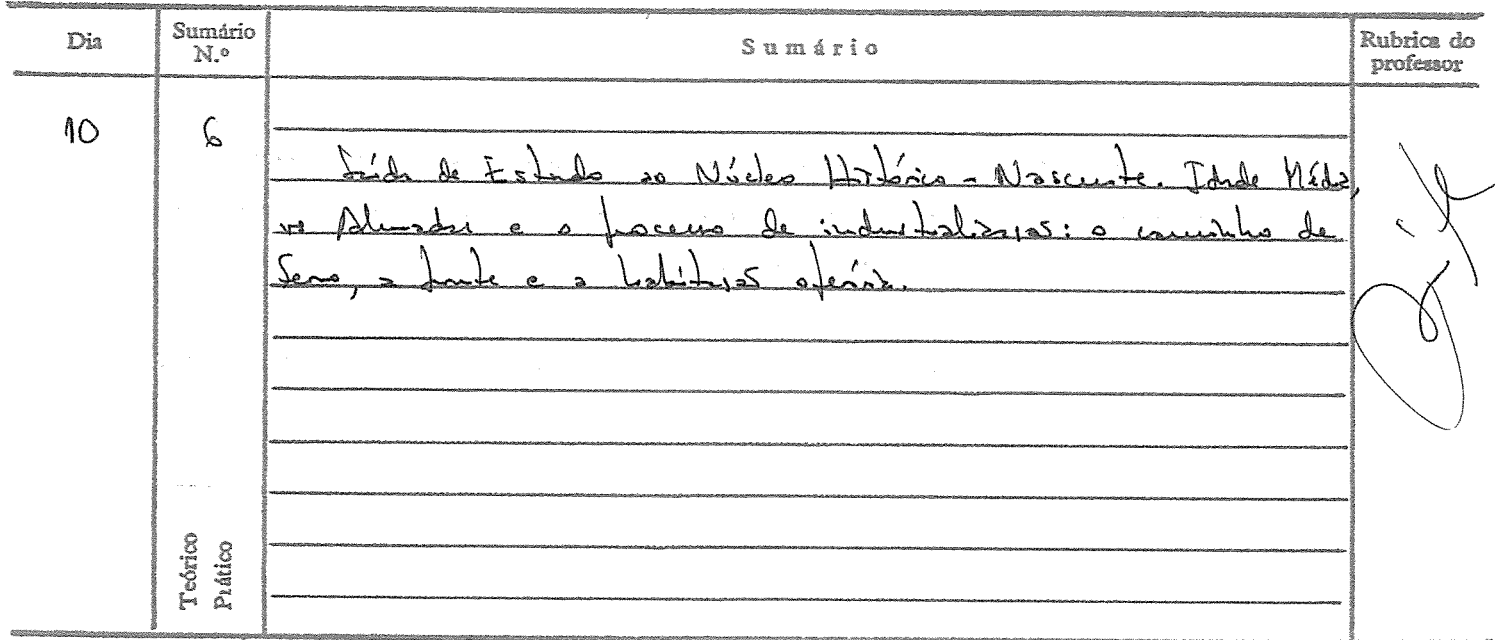 Dia
Sumário N.º
Sumário
Rubrica do professor
10
6
Saída de Estudo ao Núcleo Histórico - Nascente. Idade Média,
e o processo de industrialização: o caminho de
ferro, a frente e a habitação operária.
Teórico
Prático